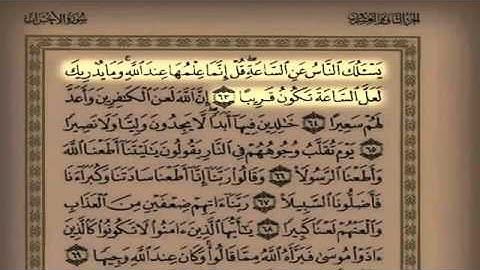 سُورَةُ الأَحْزَابِ الجُزْءُ الثَّانِي وَالعِشْرُونَ
يَسْـَٔلُكَ ٱلنَّاسُ عَنِ ٱلسَّاعَةِ ۖ قُلْ إِنَّمَا عِلْمُهَا عِندَ ٱللَّهِ ۚ وَمَا يُدْرِيكَ
لَعَلَّ ٱلسَّاعَةَ تَكُونُ قَرِيبًا ٦٣ إِنَّ ٱللَّهَ لَعَنَ ٱلْكَٰفِرِينَ وَأَعَدَّ
لَهُمْ سَعِيرًا ٦٤ خَٰلِدِينَ فِيهَآ أَبَدًا ۖ لَّا يَجِدُونَ وَلِيًّا وَلَا نَصِيرًا
٦٥ يَوْمَ تُقَلَّبُ وُجُوهُهُمْ فِي ٱلنَّارِ يَقُولُونَ يَٰلَيْتَنَآ أَطَعْنَا ٱللَّهَ
وَأَطَعْنَا ٱلرَّسُولَا۠ ٦٦ وَقَالُوا۟ رَبَّنَآ إِنَّآ أَطَعْنَا سَادَتَنَا وَكُبَرَآءَنَا
فَأَضَلُّونَا ٱلسَّبِيلَا۠ ٦٧ رَبَّنَآ ءَاتِهِمْ ضِعْفَيْنِ مِنَ ٱلْعَذَابِ
وَٱلْعَنْهُمْ لَعْنًا كَبِيرًا ٦٨ يَٰٓأَيُّهَا ٱلَّذِينَ ءَامَنُوا۟ لَا تَكُونُوا۟ كَٱلَّذِينَ
ءَاذَوْا۟ مُوسَىٰ فَبَرَّأَهُ ٱللَّهُ مِمَّا قَالُوا۟ ۚ وَكَانَ عِندَ ٱللَّهِ وَجِيهًا ٦٩